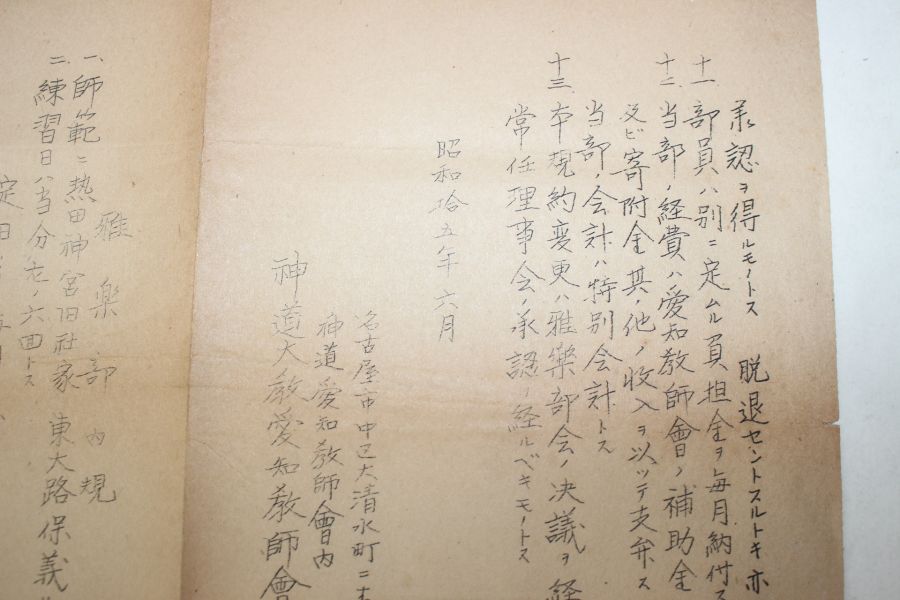 承認ヲ得ルモノトス 脱退セントスルトキ亦
十一 部員ハ別ニ定ムル負担金ヲ毎月納付ス
十二 当部ノ経費ハ愛知教師會ノ補助金
及ビ寄附金其ノ他ノ收入ヲ以ッテ支弁ス
当部ノ会計ハ特別会計トス
十三 本規約変更ハ雅樂部会ノ決議ヲ経
常任理事会ノ承認ヲ経ルベキモノトス
昭和拾五年六月
名古屋市中区大清水町二
神道愛知教師會内
神道大教愛知教師會
雅楽部内規
一、師範ニ熱田神宮旧社家 東大路保義
二、練習日ハ当分ノ七ノ六回トス
定